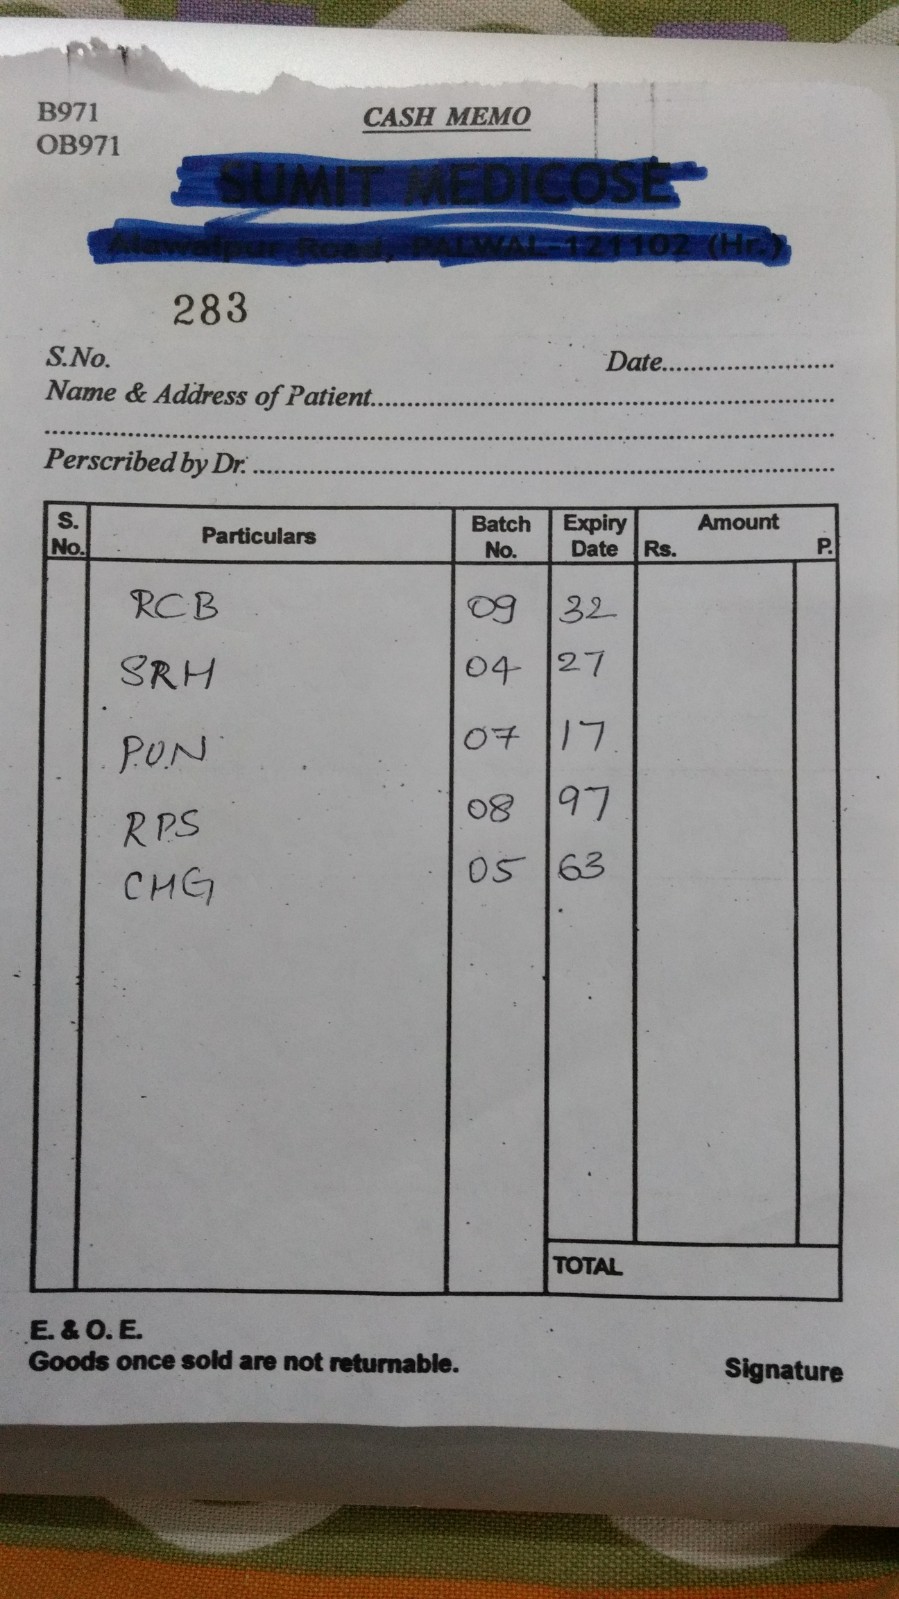 B971
OB971
CASH MEMO
SUMIT MEDICOSE
Alawalpur Road, PALWAL-121102 (Hr.)
283
S.No. Date......................
Name & Address of Patient..........................................................
..........................................................................................
Perscribed by Dr. ......................................................................
S. No. Particulars Batch No. Expiry Date Amount Rs. P.
RCB 09 32
SRH 04 27
P.U.N 07 17
RPS 08 97
CHG 05 63
TOTAL
E. & O. E.
Goods once sold are not returnable. Signature